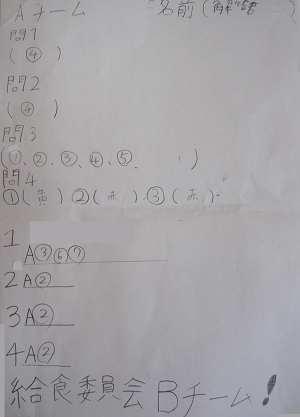 Aチーム 名前(解答 )
問1
(④)
問2
(④)
問3
(①、②、③、④、⑤、 )
問4
①(黄)②(赤)、③(赤)
1 A③⑥⑦
2 A②
3 A②
4 A②
給食委員会Bチーム!